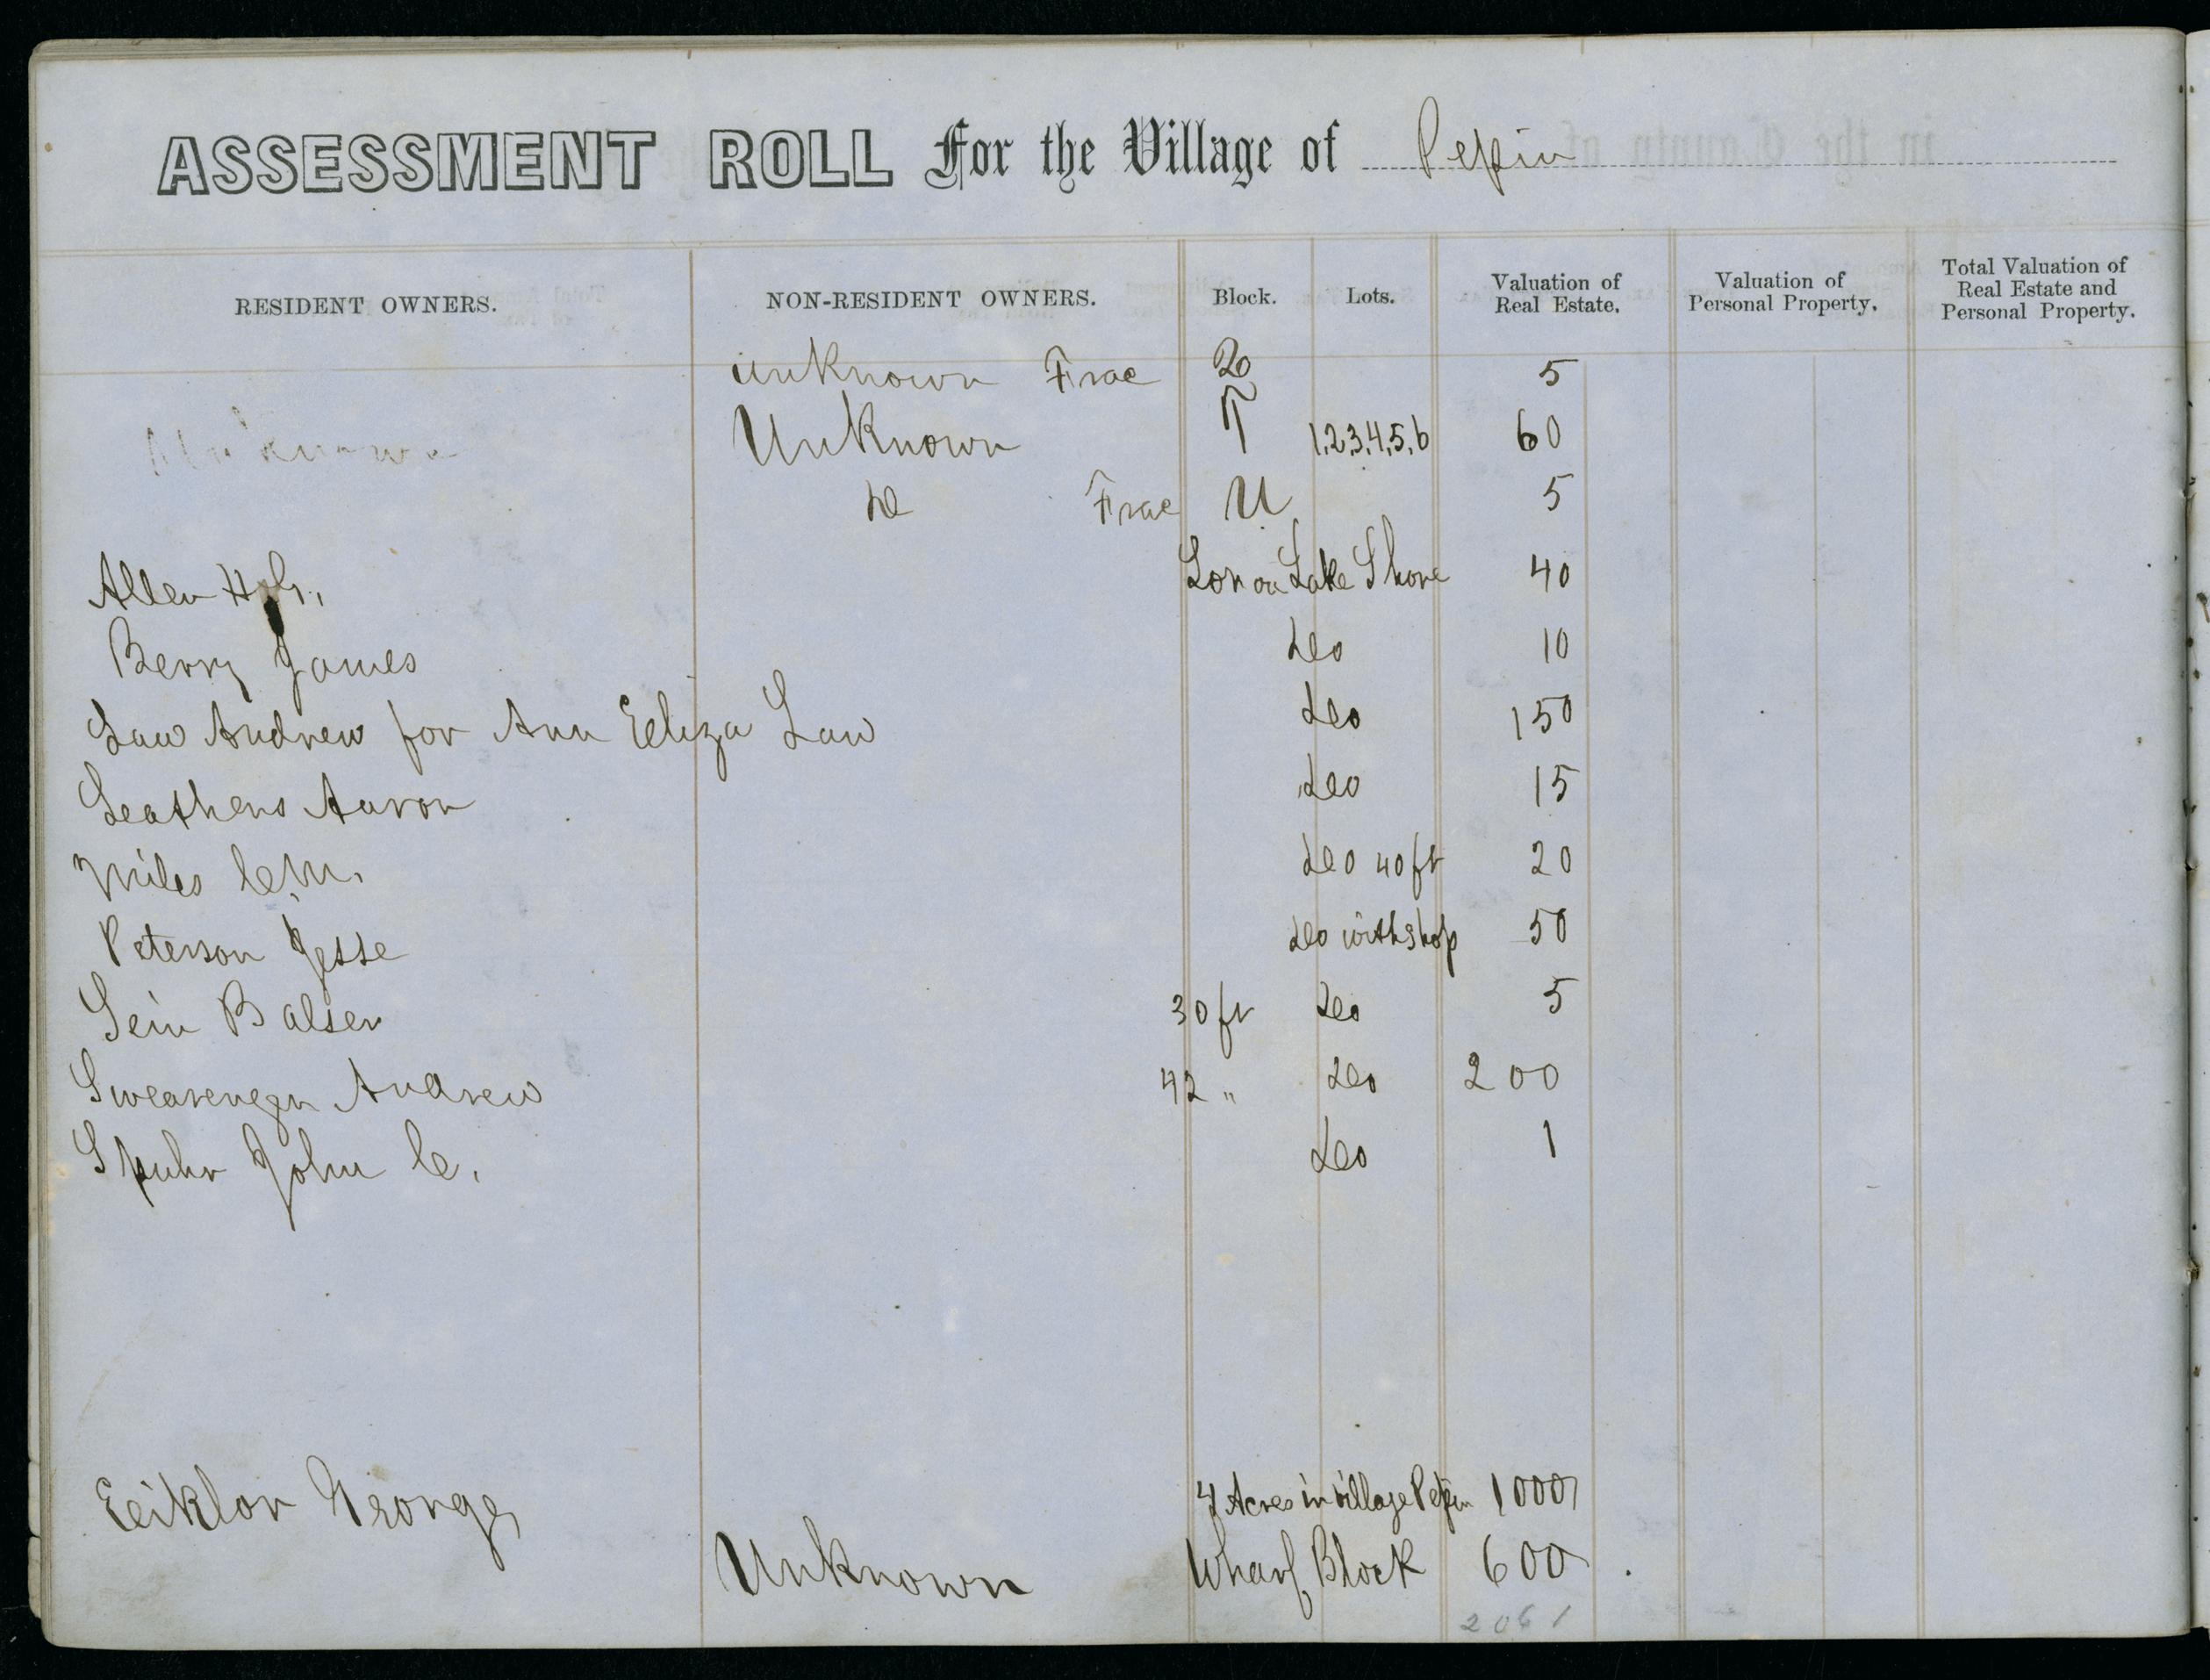 ASSESSMENT ROLL For the Village of Pepin
RESIDENT OWNERS. NON-RESIDENT OWNERS. Block. Lots. Valuation of Real Estate. Valuation of Personal Property. Total Valuation of Real Estate and Personal Property.
unknown Frac 5
Unknown Unknown T 1,2,3,4,5,6 60
do Frac U 5
Allen Lot on Lake Shore 40
Berry James do 10
Law Andrew for Ann Eliza Law do 150
Leathers Aaron do 15
Miles C.M. do 40 ft 20
Peterson Jesse do with shop 50
Sein Balser 30 ft do 5
Swearengen Andrew 42 " do 200
Spuhr John C. do 1
Eeiklor George 4 Acres in village Pepin 1000
Unknown Wharf Block 600
2061